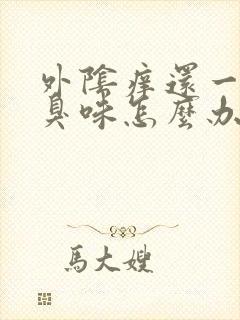 外陰痒還一
臭味怎麼办
馬大嫂